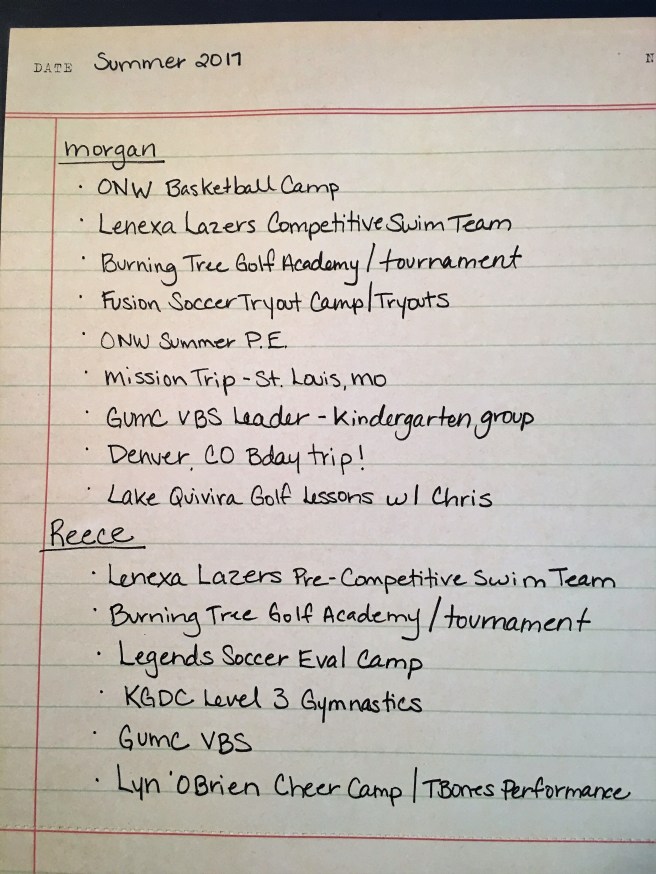 DATE Summer 2017
N
morgan
· ONW Basketball Camp
· Lenexa Lazers Competitive Swim Team
· Burning Tree Golf Academy/tournament
· Fusion Soccer Tryout Camp/Tryouts
· ONW Summer P.E.
· Mission Trip - St. Louis, mo
· GUMC VBS Leader - Kindergarten group
· Denver, CO Bday trip!
· Lake Quivira Golf Lessons w/ Chris
Reece
· Lenexa Lazers Pre-Competitive Swim Team
· Burning Tree Golf Academy/tournament
· Legends Soccer Eval Camp
· KGDC Level 3 Gymnastics
· GUMC VBS
· Lyn 'OBrien Cheer Camp/TBones Performance